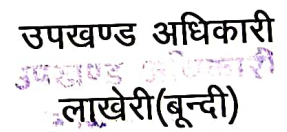 उपखण्ड अधिकारी
उपखण्ड अधिकारी
लाखेरी(बून्दी)